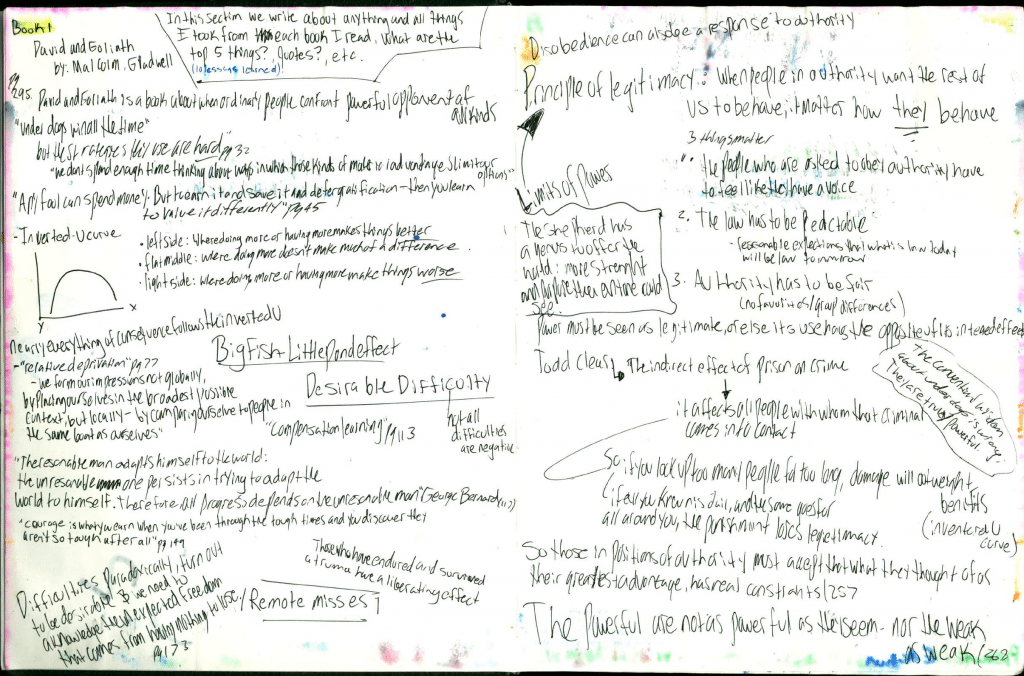 Book 1
David and Goliath
by: Malcolm, Gladwell
In this section we write about anything and all things
I took from each book I read, what are the
top 5 things? Quotes?, etc.
(10 lessons learned)
pg 295. David and Goliath is a book about when ordinary people confront powerful opponent of
all kinds
"under dogs win all the time"
but the strategies they use are hard pg 32
"we dont spend enough time thinking about ways in which those kinds of material advantages limit our
options"
"Any fool can spend money. But to earn it and save it and defer gratification - then you learn
to value it differently" pg 45
- Inverted-U curve
• left side: where doing more or having more makes things better
• flat middle: where doing more doesn't make much of a difference.
• right side: where doing more or having more make things worse
x
y
nearly everything of consequence follows the inverted U
Big Fish-Little Pond effect
- "relative deprivation" pg 77
- we form our impressions not globally,
by placing ourselves in the broadest possible
context, but locally - by comparing ourselve to people in
the same boat as ourselves"
Desirable Difficulty
not all
difficulties
are negative
"compensation learning" pg 113
"The resonable man adapts himself to the world:
the unresonable one persists in trying to adapt the
world to himself. Therefore all progress depends on the unresonable man" George Bernard (117)
"courage is what you earn when you've been through the tough times and you discover they
aren't so tough after all" pg 149
Difficulties Paradoxically, turn out
to be desirable & we need to
acknowledge the unexpected freedom
that comes from having nothing to lose
pg 173
Those who have endured and survived
a truma have a liberating effect
/Remote misses
Disobedience can also be a response to authority
Principle of legitimacy: When people in authority want the rest of
us to behave, it matter how they behave
3 things matter
1. the people who are asked to obey authority have
to feel like they have a voice
2. The law has to be Predictable
- reasonable expections that what is law today
will be law tomorrow
3. Authority has to be fair
(no favorites/group differences)
Limits of Power
The shepherd has
a nerve to offer the
world: more strenght
and purpose than anyone could
see.
Power must be seen as legitimate, or else its use have the opposite of its intened effect
Todd Clear
The indirect effect of prison on crime
it affects all people with whom that criminal
comes into contact
The conventional wisdom
about underdogs is wrong.
They are truly
powerful.
So if you lock up too many people for too long, damage will outweight
benefits
(invented U
curve)
if all you know is Jail, and the same goes for
all around you, the punishment loses legetimacy.
So those in positions of authority must accept that what they thought of as
their greatest advantage, has real constiants/257
The Powerful are not as powerful as the seem - nor the weak
as weak/262